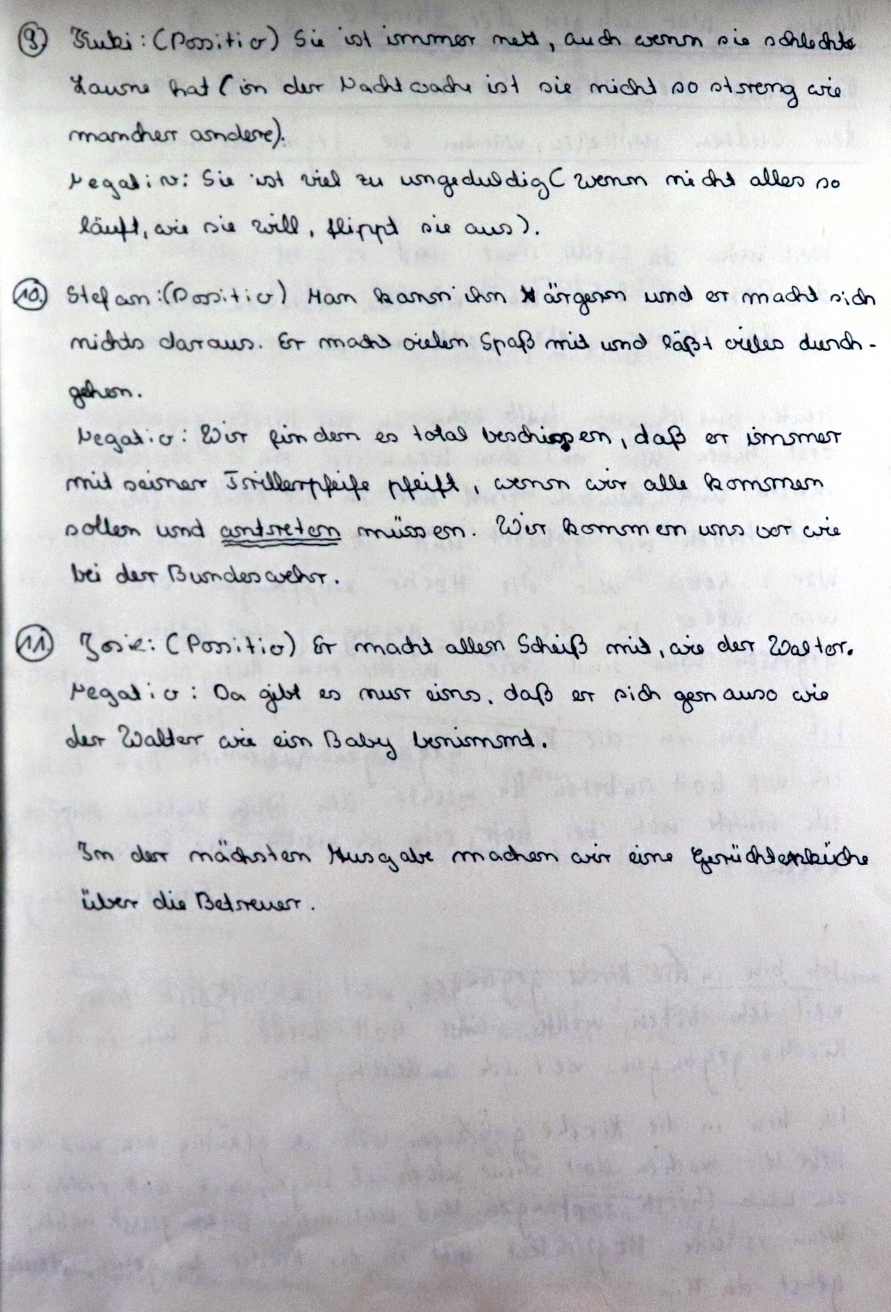 9. Kuki: (Possitiv) Sie ist immer nett, auch wenn sie schlechte
Laune hat (in der Nachtwache ist sie nicht so streng wie
mancher andere).
Negativ: Sie ist viel zu ungeduldig (wenn nicht alles so
läuft, wie sie will, flippt sie aus).
10. Stefan: (Possitiv) Man kann ihn ärgern und er macht sich
nichts daraus. Er macht vielen Spaß mit und läßt vieles durch-
gehen.
Negativ: Wir finden es total beschissen, daß er immer
mit seiner Trillerpfeife pfeift, wenn wir alle kommen
sollen und antreten müssen. Wir kommen uns vor wie
bei der Bundeswehr.
11 Josie: (Possitiv) Er macht allen Scheiß mit, wie der Walter.
Negativ: Da gibt es nur eins, daß er sich genauso wie
der Walter wie ein Baby benimmt.
In der nächsten Ausgabe machen wir eine Gerüchteküche
über die Betreuer.